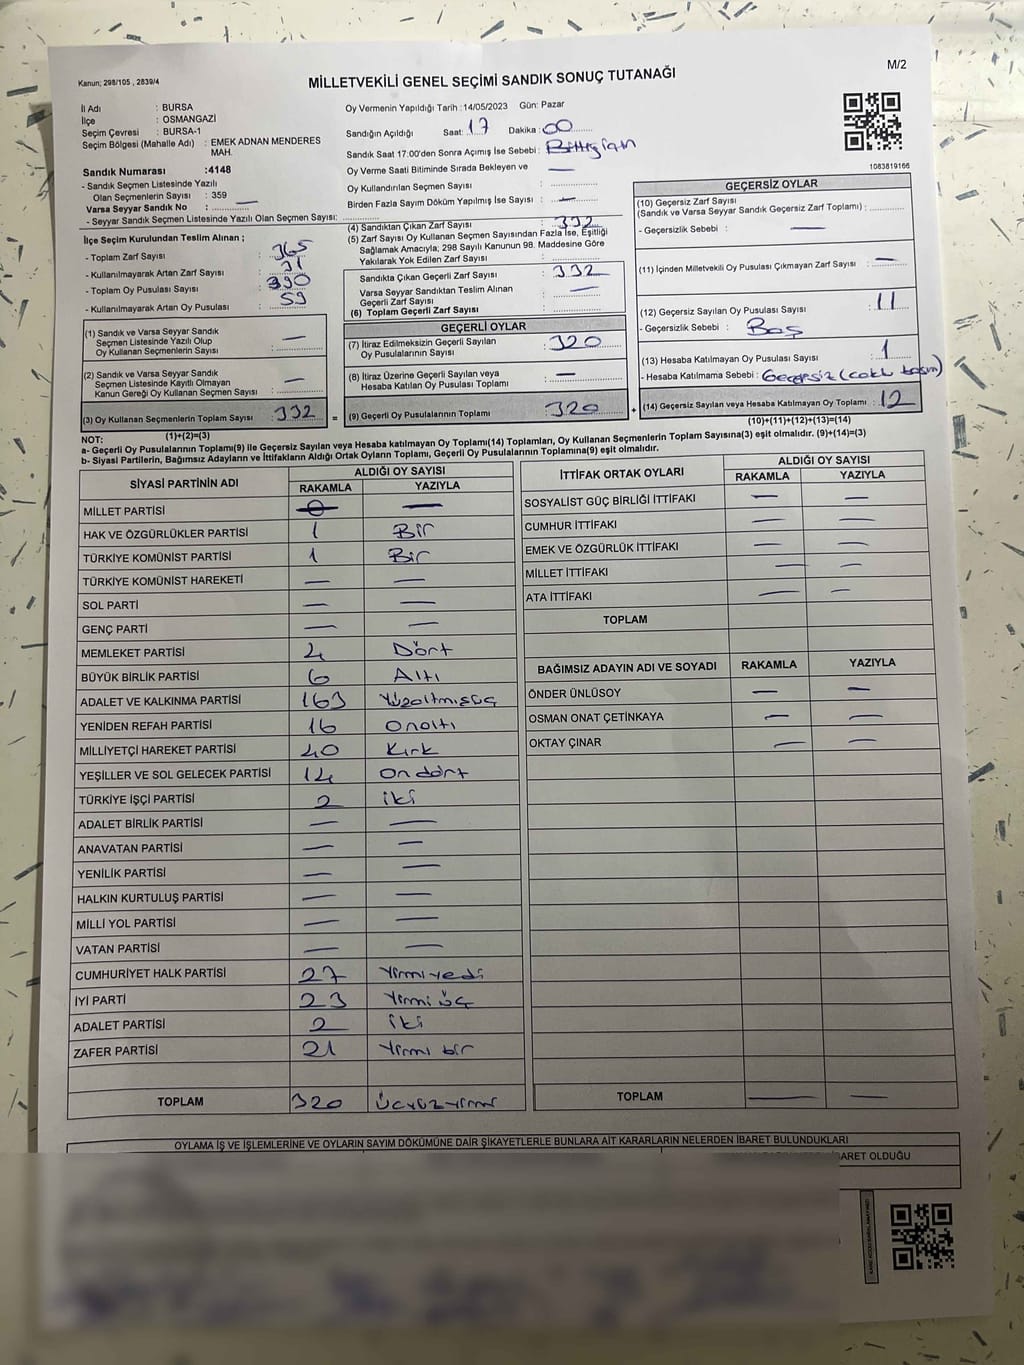 Kanun; 298/105 , 2839/4
MİLLETVEKİLİ GENEL SEÇİMİ SANDIK SONUÇ TUTANAĞI
M/2
İl Adı : BURSA
İlçe : OSMANGAZİ
Seçim Çevresi : BURSA-1
Seçim Bölgesi (Mahalle Adı) : EMEK ADNAN MENDERES
MAH.
Sandık Numarası :4148
- Sandık Seçmen Listesinde Yazılı
Olan Seçmenlerin Sayısı : 359
Varsa Seyyar Sandık No : —
- Seyyar Sandık Seçmen Listesinde Yazılı Olan Seçmen Sayısı:
Oy Vermenin Yapıldığı Tarih :14/05/2023 Gün: Pazar
Sandığın Açıldığı Saat: 17 Dakika : 00
Sandık Saat 17:00'den Sonra Açımış İse Sebebi :
Oy Verme Saati Bitiminde Sırada Bekleyen ve : —
Oy Kullandırılan Seçmen Sayısı :
Birden Fazla Sayım Döküm Yapılmış İse Sayısı : —
1083819166
İlçe Seçim Kurulundan Teslim Alınan ;
- Toplam Zarf Sayısı : 365
- Kullanılmayarak Artan Zarf Sayısı : 31
- Toplam Oy Pusulası Sayısı : 390
- Kullanılmayarak Artan Oy Pusulası : 59
(1) Sandık ve Varsa Seyyar Sandık
Seçmen Listesinde Yazılı Olup
Oy Kullanan Seçmenlerin Sayısı : —
(2) Sandık ve Varsa Seyyar Sandık
Seçmen Listesinde Kayıtlı Olmayan
Kanun Gereği Oy Kullanan Seçmen Sayısı : —
(3) Oy Kullanan Seçmenlerin Toplam Sayısı : 332 =
(1)+(2)=(3)
(4) Sandıktan Çıkan Zarf Sayısı : 332
(5) Zarf Sayısı Oy Kullanan Seçmen Sayısından Fazla İse, Eşitliği
Sağlamak Amacıyla; 298 Sayılı Kanunun 98. Maddesine Göre
Yakılarak Yok Edilen Zarf Sayısı :
Sandıkta Çıkan Geçerli Zarf Sayısı : 332
Varsa Seyyar Sandıktan Teslim Alınan
Geçerli Zarf Sayısı : —
(6) Toplam Geçerli Zarf Sayısı :
GEÇERLİ OYLAR
(7) İtiraz Edilmeksizin Geçerli Sayılan
Oy Pusulalarının Sayısı : 320
(8) İtiraz Üzerine Geçerli Sayılan veya
Hesaba Katılan Oy Pusulası Toplamı : —
(9) Geçerli Oy Pusulalarının Toplamı : 320 +
GEÇERSİZ OYLAR
(10) Geçersiz Zarf Sayısı
(Sandık ve Varsa Seyyar Sandık Geçersiz Zarf Toplamı) :
- Geçersizlik Sebebi : —
(11) İçinden Milletvekili Oy Pusulası Çıkmayan Zarf Sayısı : —
(12) Geçersiz Sayılan Oy Pusulası Sayısı : 11
- Geçersizlik Sebebi : Boş
(13) Hesaba Katılmayan Oy Pusulası Sayısı : 1
- Hesaba Katılmama Sebebi : Geçersiz
(14) Geçersiz Sayılan veya Hesaba Katılmayan Oy Toplamı : 12
(10)+(11)+(12)+(13)=(14)
NOT:
a- Geçerli Oy Pusulalarının Toplamı(9) ile Geçersiz Sayılan veya Hesaba katılmayan Oy Toplamı(14) Toplamları, Oy Kullanan Seçmenlerin Toplam Sayısına(3) eşit olmalıdır. (9)+(14)=(3)
b- Siyasi Partilerin, Bağımsız Adayların ve İttifakların Aldığı Ortak Oyların Toplamı, Geçerli Oy Pusulalarının Toplamına(9) eşit olmalıdır.
SİYASİ PARTİNİN ADI
ALDIĞI OY SAYISI
RAKAMLA YAZIYLA
MİLLET PARTİSİ 0 —
HAK VE ÖZGÜRLÜKLER PARTİSİ 1 Bir
TÜRKİYE KOMÜNİST PARTİSİ 1 Bir
TÜRKİYE KOMÜNİST HAREKETİ — —
SOL PARTİ — —
GENÇ PARTİ — —
MEMLEKET PARTİSİ 4 Dört
BÜYÜK BİRLİK PARTİSİ 6 Altı
ADALET VE KALKINMA PARTİSİ 163 Yüzaltmışüç
YENİDEN REFAH PARTİSİ 16 Onaltı
MİLLİYETÇİ HAREKET PARTİSİ 40 Kırk
YEŞİLLER VE SOL GELECEK PARTİSİ 14 On dört
TÜRKİYE İŞÇİ PARTİSİ 2 iki
ADALET BİRLİK PARTİSİ — —
ANAVATAN PARTİSİ — —
YENİLİK PARTİSİ — —
HALKIN KURTULUŞ PARTİSİ — —
MİLLİ YOL PARTİSİ — —
VATAN PARTİSİ — —
CUMHURİYET HALK PARTİSİ 27 Yirmiyedi
İYİ PARTİ 23 Yirmi üç
ADALET PARTİSİ 2 iki
ZAFER PARTİSİ 21 Yirmi bir
TOPLAM 320 Üçyüzyirmi
İTTİFAK ORTAK OYLARI
ALDIĞI OY SAYISI
RAKAMLA YAZIYLA
SOSYALİST GÜÇ BİRLİĞİ İTTİFAKI — —
CUMHUR İTTİFAKI — —
EMEK VE ÖZGÜRLÜK İTTİFAKI — —
MİLLET İTTİFAKI — —
ATA İTTİFAKI — —
TOPLAM
BAĞIMSIZ ADAYIN ADI VE SOYADI RAKAMLA YAZIYLA
ÖNDER ÜNLÜSOY — —
OSMAN ONAT ÇETİNKAYA — —
OKTAY ÇINAR — —
TOPLAM — —
OYLAMA İŞ VE İŞLEMLERİNE VE OYLARIN SAYIM DÖKÜMÜNE DAİR ŞİKAYETLERLE BUNLARA AİT KARARLARIN NELERDEN İBARET BULUNDUKLARI
BARET OLDUĞU